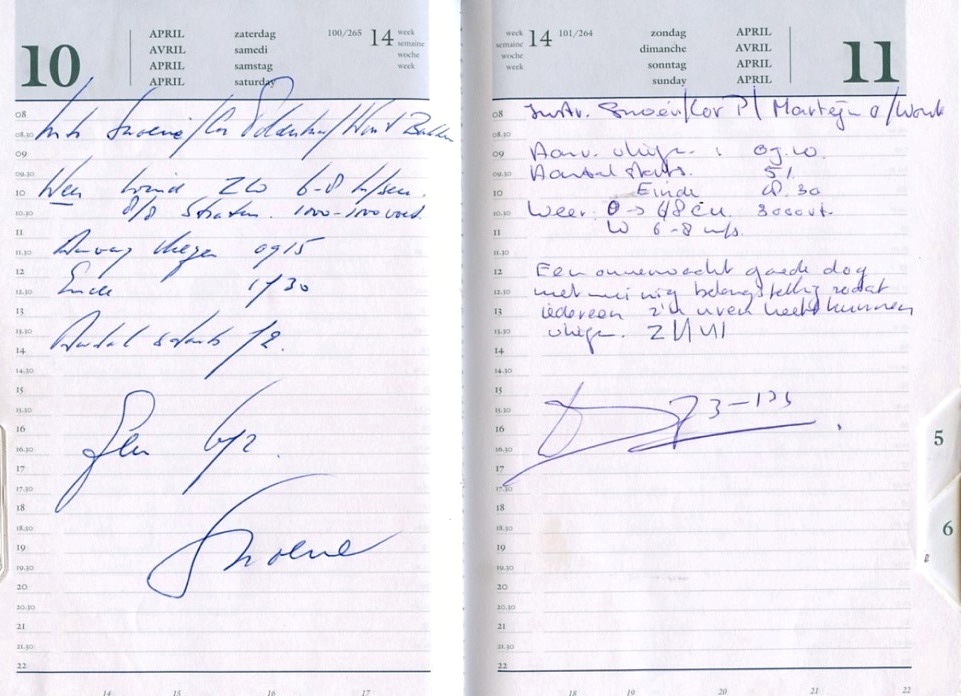 10
APRIL zaterdag 100/265 14 week
AVRIL samedi semaine
APRIL samstag woche
APRIL saturday week
08
08.30
09
09.30
10
10.30
11
11.30
12
12.30
13
13.30
14
14.30
15
15.30
16
16.30
17
17.30
18
18.30
19
19.30
20
20.30
21
21.30
22
Weer wind ZW 6-8 m/sec.
8/8 Straten. 1000-
Aanvang vliegen 0915
Einde 1730
Aantal starts 12.
Geen
Snoene
14 15 16 17
week 14 101/264 zondag APRIL
semaine dimanche AVRIL
woche sonntag APRIL
week sunday APRIL
11
08
08.30
09
09.30
10
10.30
11
11.30
12
12.30
13
13.30
14
14.30
15
15.30
16
16.30
17
17.30
18
18.30
19
19.30
20
20.30
21
21.30
22
Instr. Snoei/Cor P/ Martijn O/Wout
Aanv. vliegn. : 09.10.
Aantal starts. 51
Einde 18.30
Weer: 0 → 4/8 cu. 3000vt.
W 6-8 m/s.
Een onverwacht goede dag
met weinig belangstelling zodat
iedereen z'n uren heeft kunnen
vliegn.
18 19 20 21 22
5
6